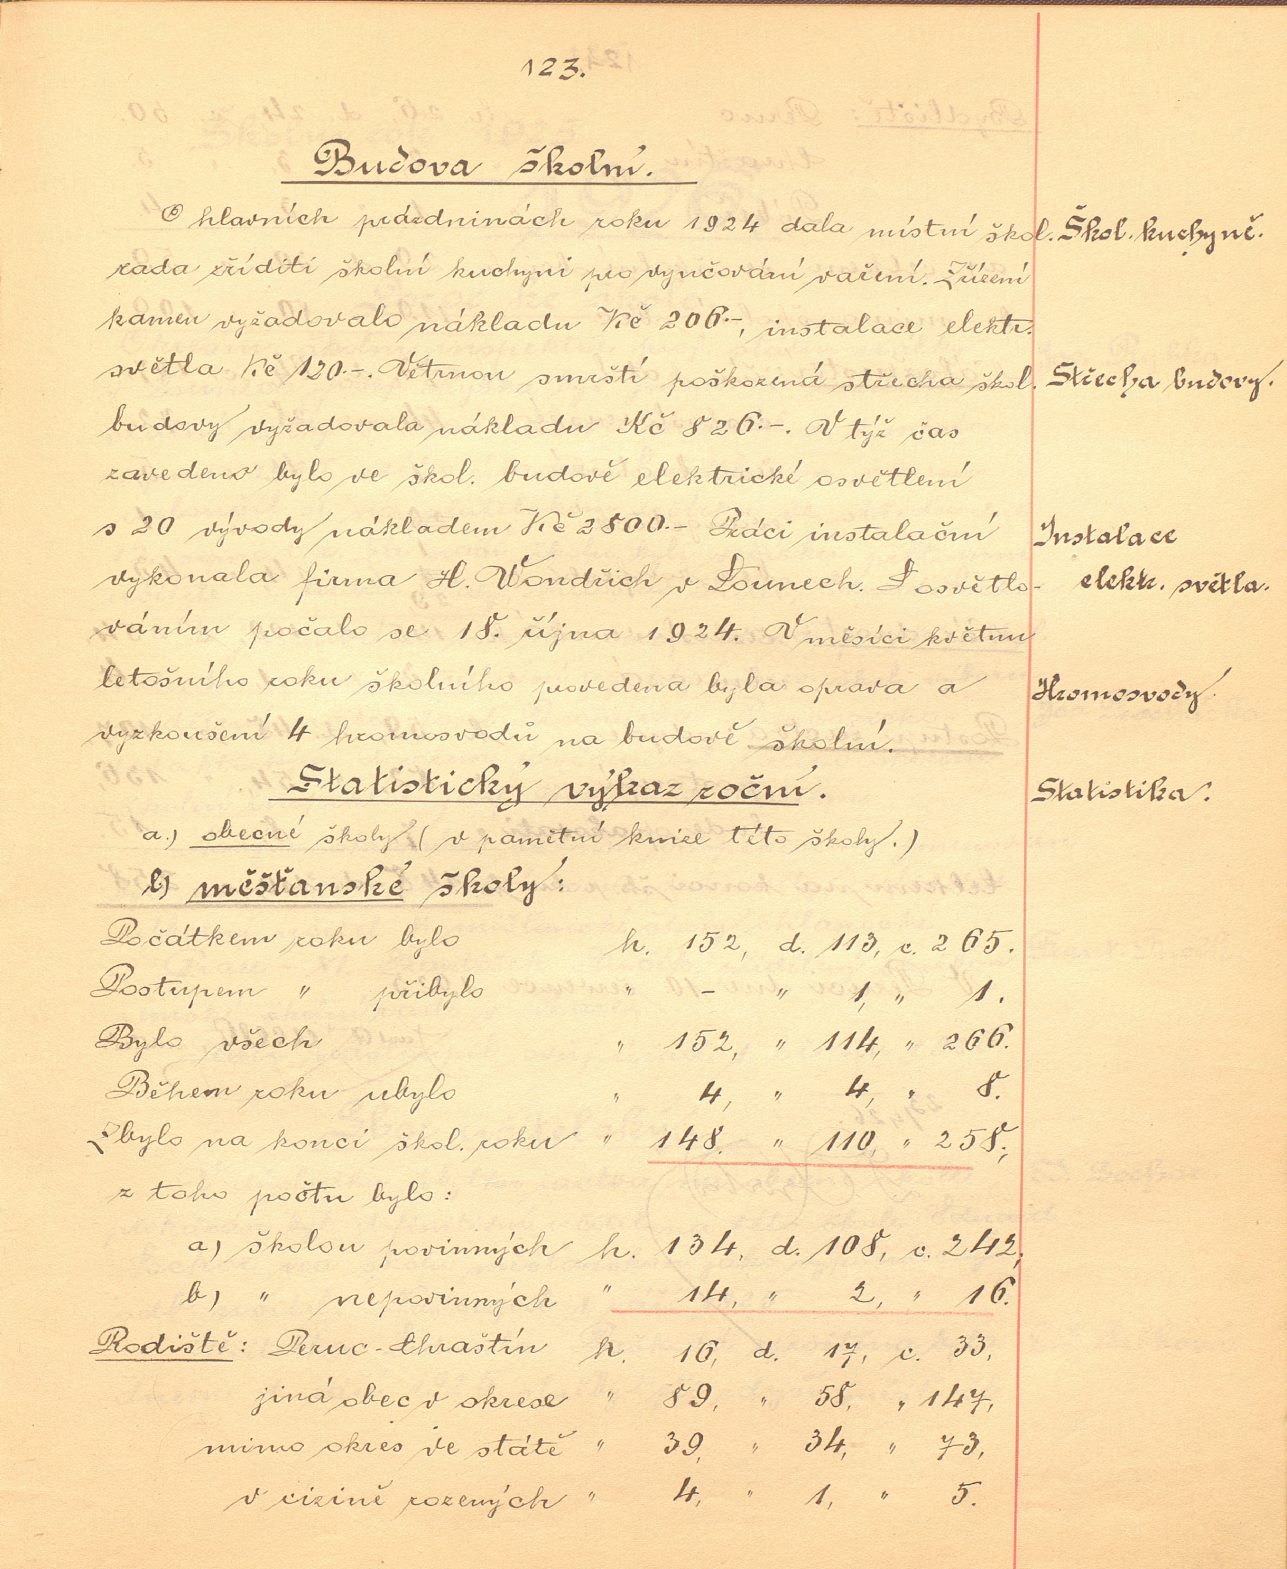 123.
Budova školní.
O hlavních prázdninách roku 1924 dala místní škol. Škol. kuchyně.
rada zříditi školní kuchyni pro vyučování vaření. Zřízení
kamen vyžadovalo nákladu Kč 206.-, instalace elektr.
světla Kč 120.-. Větrnou smrští poškozená střecha škol. Střecha budovy.
budovy vyžadovala nákladu Kč 826.-. V týž čas
zavedeno bylo ve škol. budově elektrické osvětlení
s 20 vývody nákladem Kč 2800.- Práci instalační Instalace
vykonala firma H. Wondřich v Lounech. S osvětlo- elektr. světla.
váním počalo se 18. října 1924. V měsíci květnu
letošního roku školního provedena byla oprava a Hromosvody.
vyzkoušení 4 hromosvodů na budově školní.
Statistický výkaz roční. Statistika.
a.) obecné školy (v pamětní knize této školy.)
b) měšťanské školy:
Počátkem roku bylo h. 152, d. 113, c. 265.
Postupem " přibylo " - " 1, " 1.
Bylo všech " 152, " 114, " 266.
Během roku ubylo " 4, " 4, " 8.
Zbylo na konci škol. roku " 148. " 110, " 258,
z toho počtu bylo:
a) školou povinných h. 134, d. 108, c. 242,
b) " nepovinných " 14, " 2, " 16.
Rodiště: Peruc-Chraštín h. 16, d. 17, c. 33,
jiná obec v okrese " 89, " 58, " 147,
mimo okres ve státě " 39, " 34, " 73,
v cizině rozených " 4, " 1, " 5.